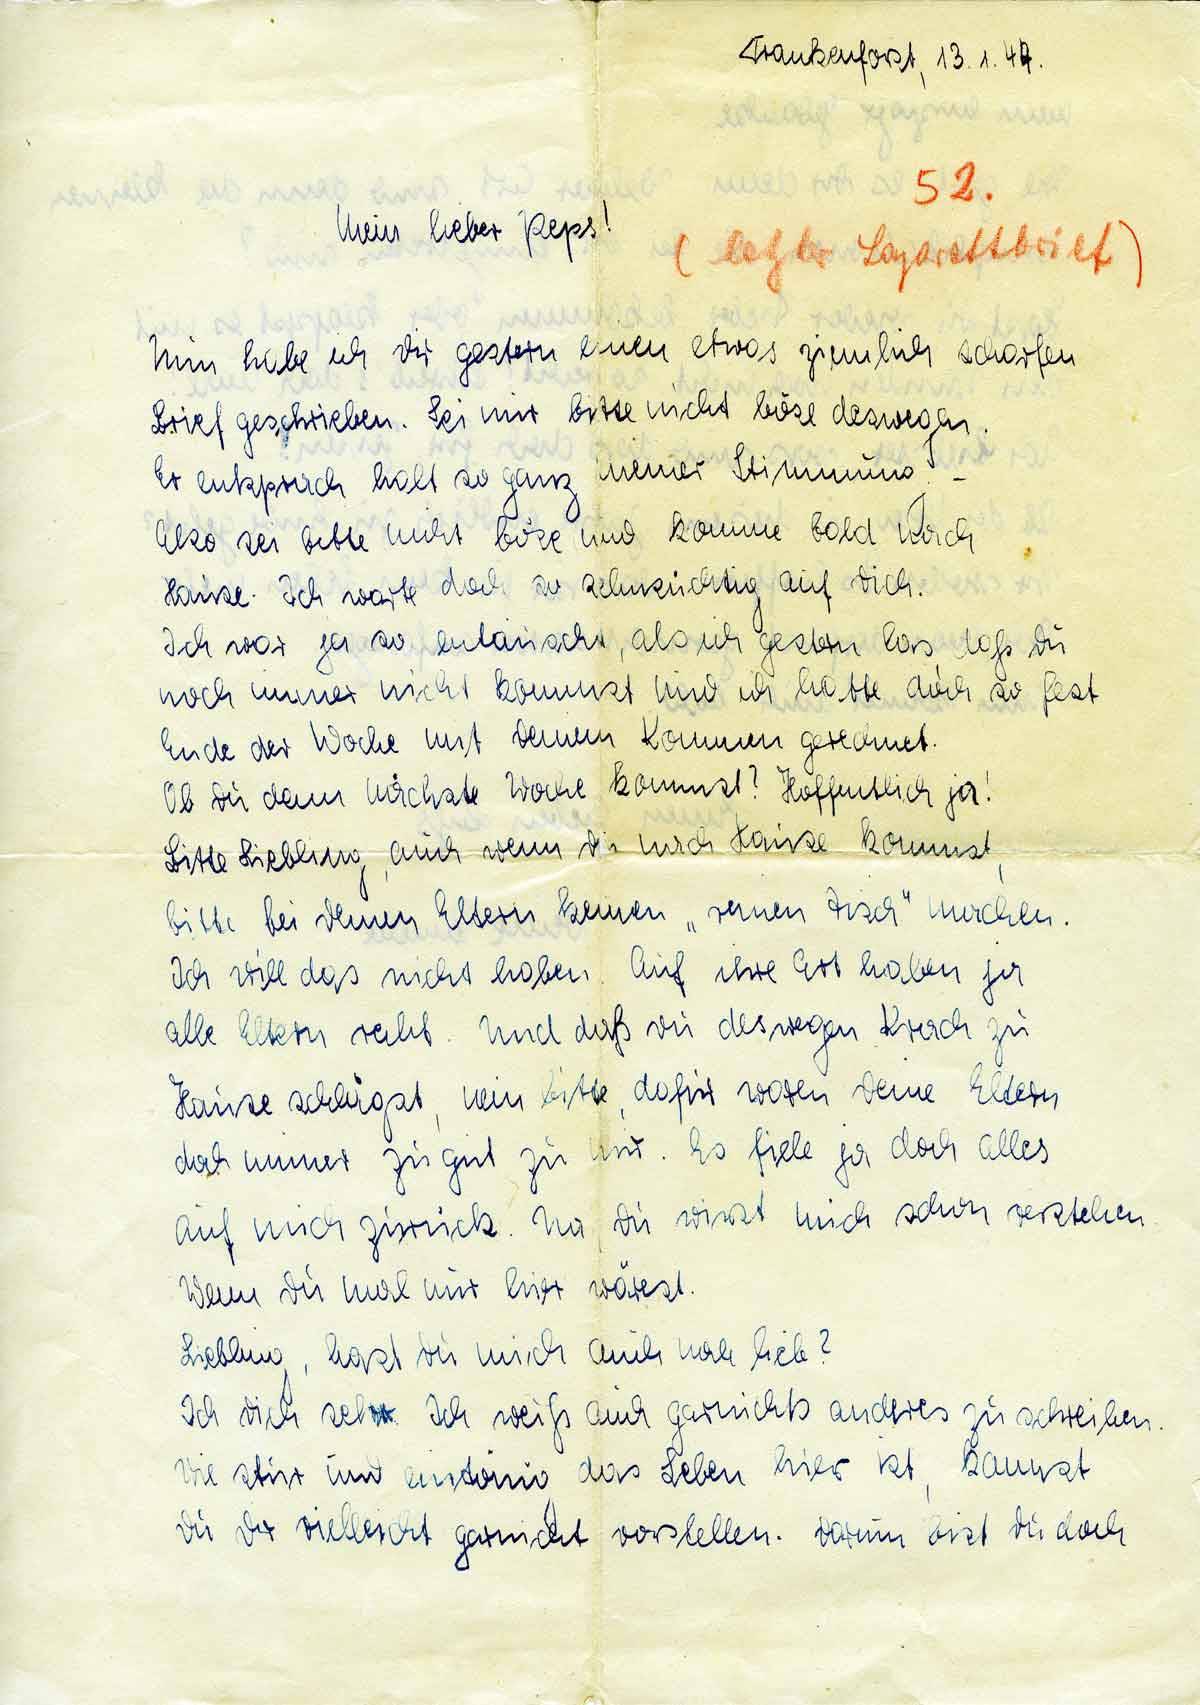 Frankenforst, 13.1.47.
52.
(letzter Lazarettbrief)
Mein lieber Peps!
Nun habe ich Dir gestern einen etwas ziemlich scharfen
Brief geschrieben. Sei mir bitte nicht böse deswegen.
Er entsprach halt so ganz meiner Stimmung! -
Also sei bitte nicht böse und komme bald nach
Hause. Ich warte doch so sehnsüchtig auf Dich.
Ich war ja so entäuscht, als ich gestern las daß Du
noch immer nicht kommst und ich hatte doch so fest
Ende der Woche mit Deinem Kommen gerechnet.
Ob Du denn nächste Woche kommst? Hoffentlich ja!
Bitte Liebling, auch wenn Du nach Hause kommst,
bitte bei Deinen Eltern keinen „reinen Tisch" machen.
Ich will das nicht haben. Auf ihre Art haben ja
alle Eltern recht. Und daß Du deswegen Krach zu
Hause schlägst, nein bitte, dafür waren Deine Eltern
doch immer zu gut zu mir. Es fiele ja doch alles
auf mich zurück. Na Du wirst mich schon verstehen.
Wenn Du mal nur hier wärest.
Liebling, hast Du mich auch noch lieb?
Ich Dich sehr. Ich weiß auch garnichts anderes zu schreiben.
Wie stur und eintönig das Leben hier ist, kannst
Du Dir vielleicht garnicht vorstellen. Darum bist Du doch